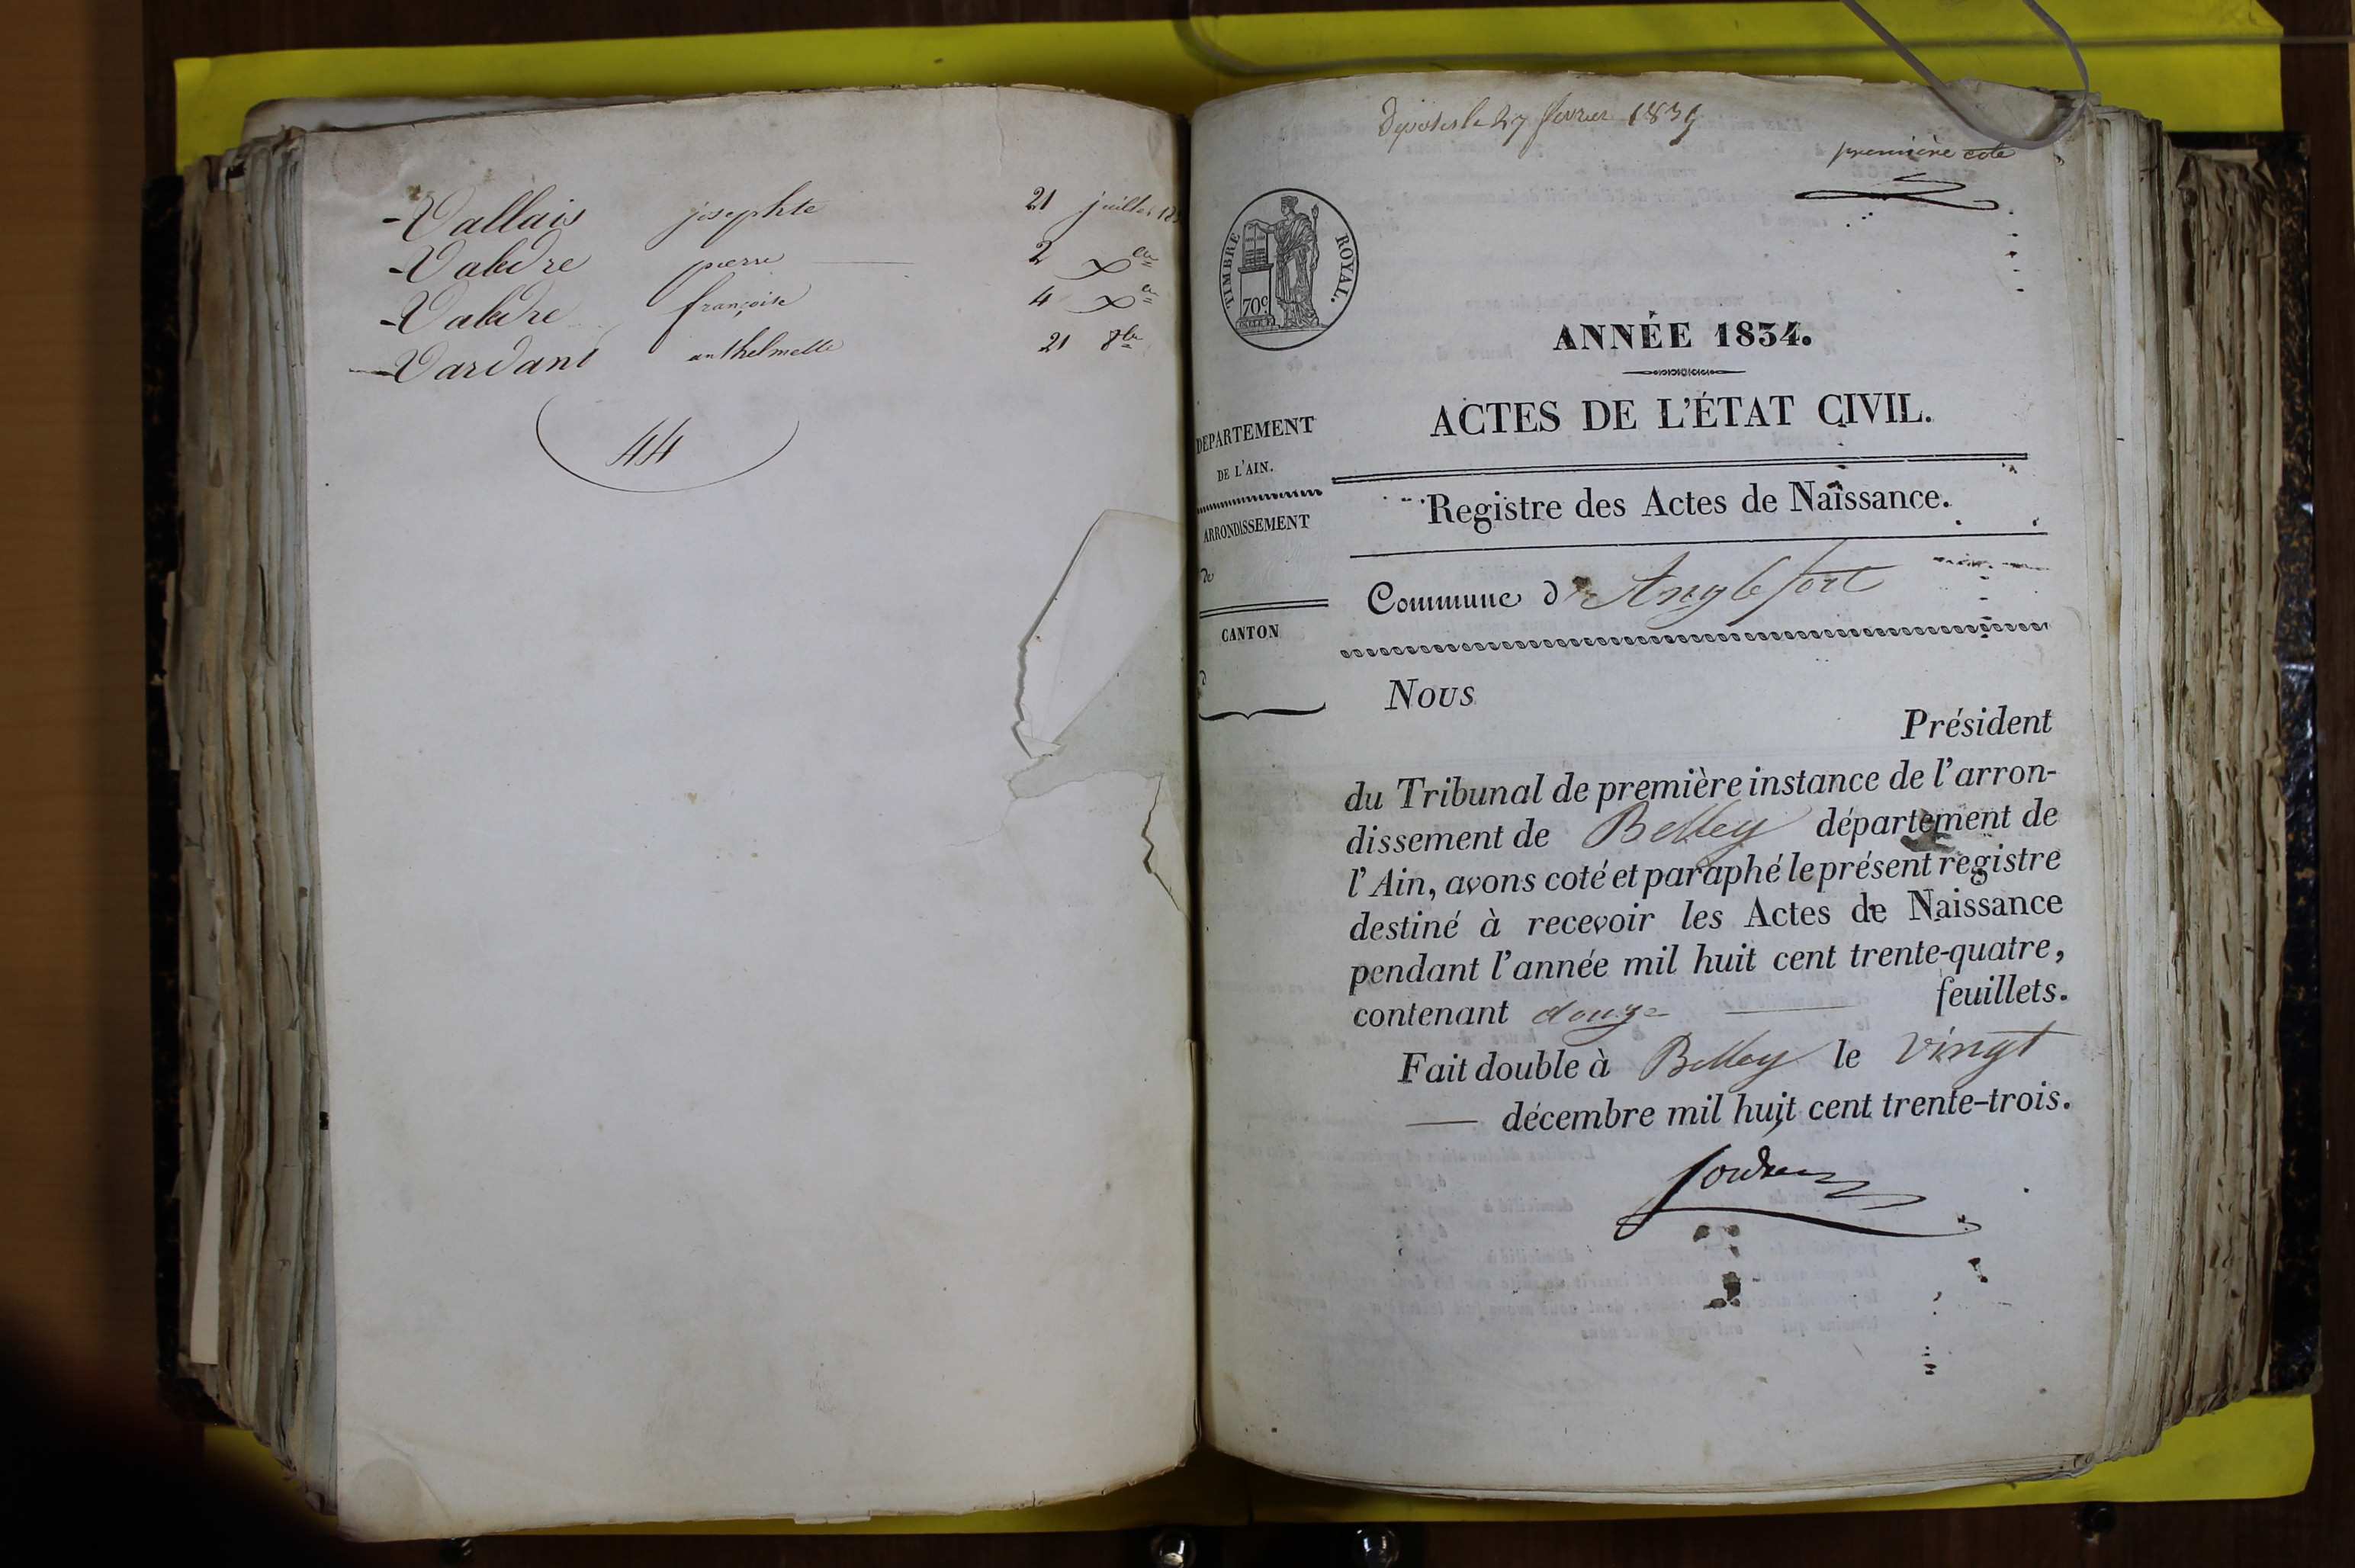 Vallais josephte 21 juillet
pierre 2 Xbre
françoise 4 Xbre
Vardant anthelmette 21 8bre
44
le 27 février
première cote
TIMBRE ROYAL.
70c
ANNÉE 1834.
ACTES DE L'ÉTAT CIVIL.
DEPARTEMENT
DE L'AIN.
ARRONDISSEMENT
de
CANTON
d
Registre des Actes de Naissance.
Commune d'Anglefort
Nous
Président
du Tribunal de première instance de l'arron-
dissement de Belley département de
l'Ain, avons coté et paraphé le présent registre
destiné à recevoir les Actes de Naissance
pendant l'année mil huit cent trente-quatre,
contenant douze feuillets.
Fait double à Belley le vingt
décembre mil huit cent trente-trois.